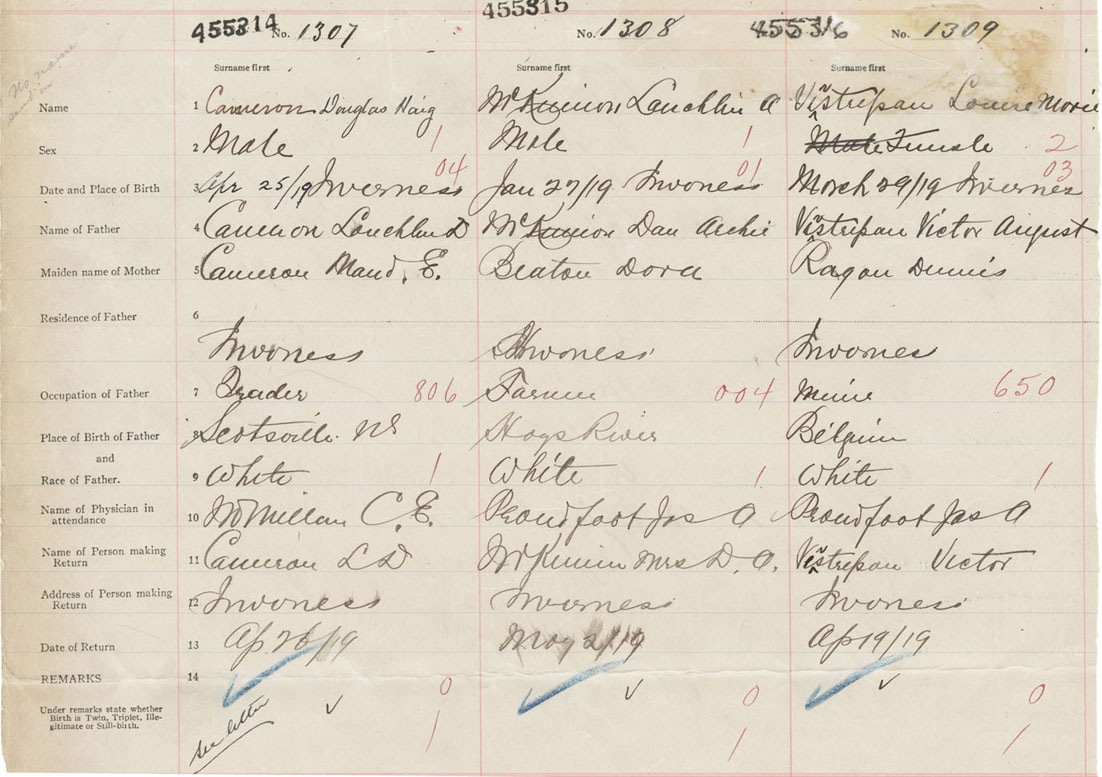 455314 No. 1307 455315 No. 1308 455316 No. 1309
Surname first Surname first Surname first
No name
Name 1 Cameron Douglas Haig McKinnon Lauchlin A Vinstrepan Louise Marie
Sex 2 Male 1 Male 1 Male Female 2
04 01 03
Date and Place of Birth 3 Apr 25/19 Inverness Jan 27/19 Inverness March 29/19 Inverness
Name of Father 4 Cameron Lauchlin D McKinnon Dan Archie Vinstrepan Victor August
Maiden name of Mother 5 Cameron Maud. E. Beaton Dora Ragon
Residence of Father 6
Inverness Inverness Inverness
Occupation of Father 7 Trader 806 Farmer 004 Miner 650
Place of Birth of Father 8 Scotsville. NS Hays River Belgium
and
Race of Father. 9 White 1 White 1 White 1
Name of Physician in attendance 10 McMillan C. E. Proudfoot Jas A Proudfoot Jas A
Name of Person making Return 11 Cameron L D McKinnon Mrs D. A. Vinstrepan Victor
Address of Person making Return 12 Inverness Inverness Inverness
Date of Return 13 Ap 26/19 May 2/19 Ap 19/19
REMARKS 14
0 0 0
Under remarks state whether
Birth is Twin, Triplet, Ille-
gitimate or Still-birth.
1 1 1
see letter